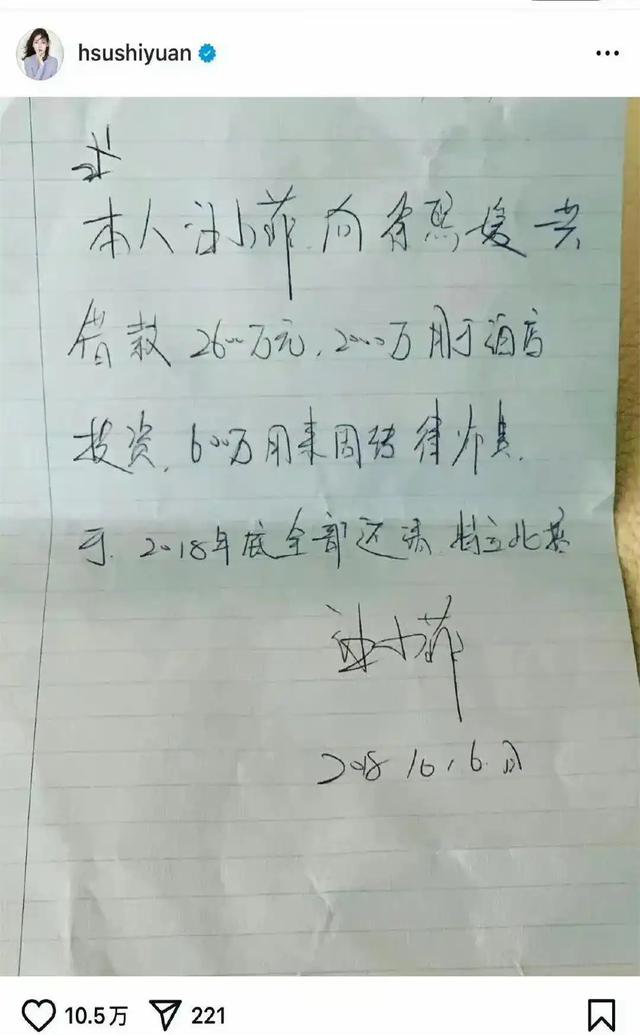 hsushiyuan
本人汪小菲向徐熙媛共
借款2600万元,2000万用于酒店
投资,600万用来周转律师费.
于2018年底全部还清 特立此据
汪小菲
2018 10, 6.日
10.5万 221